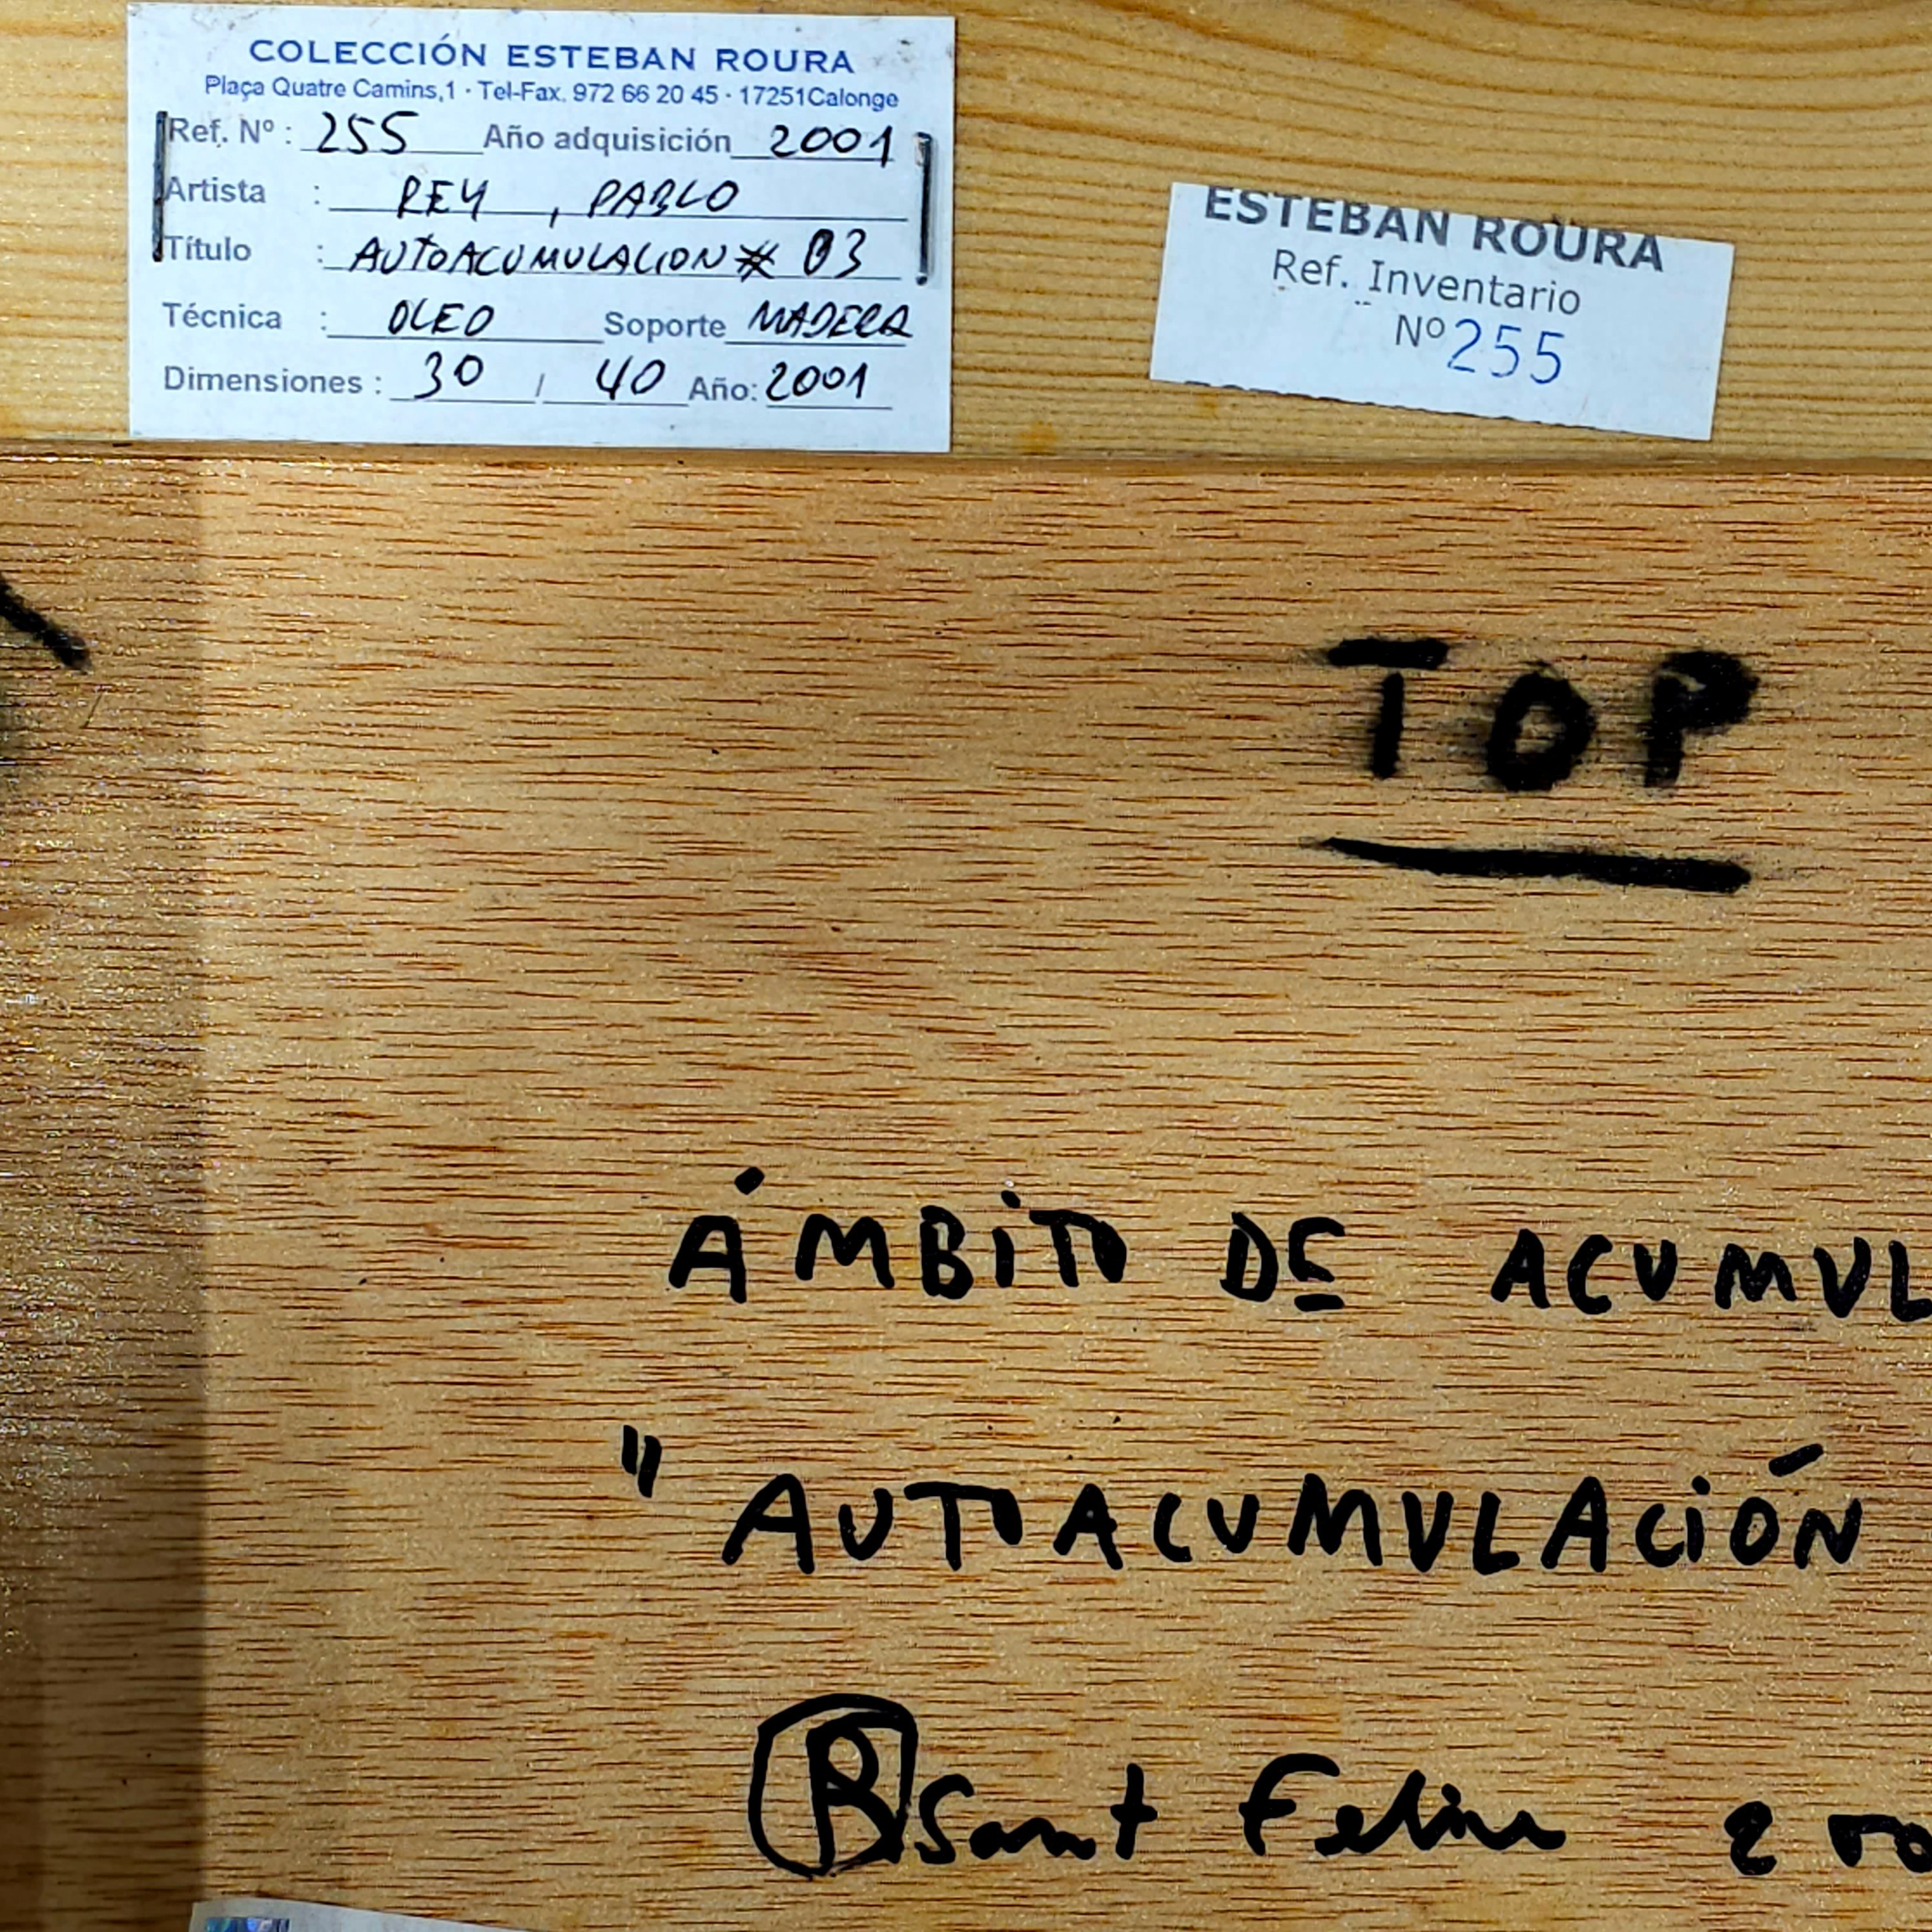 COLECCIÓN ESTEBAN ROURA
Plaça Quatre Camins,1 · Tel-Fax. 972 66 20 45 · 17251Calonge
Ref. Nº : 255 Año adquisición 2001
Artista : REY, PABLO
Título : AUTOACUMULACION # 03
Técnica : OLEO Soporte MADERA
Dimensiones : 30 / 40 Año: 2001
ESTEBAN ROURA
Ref. Inventario
Nº 255
TOP
ÁMBITO DE ACUMUL
" AUTOACUMULACIÓN
Sant Feliu 200